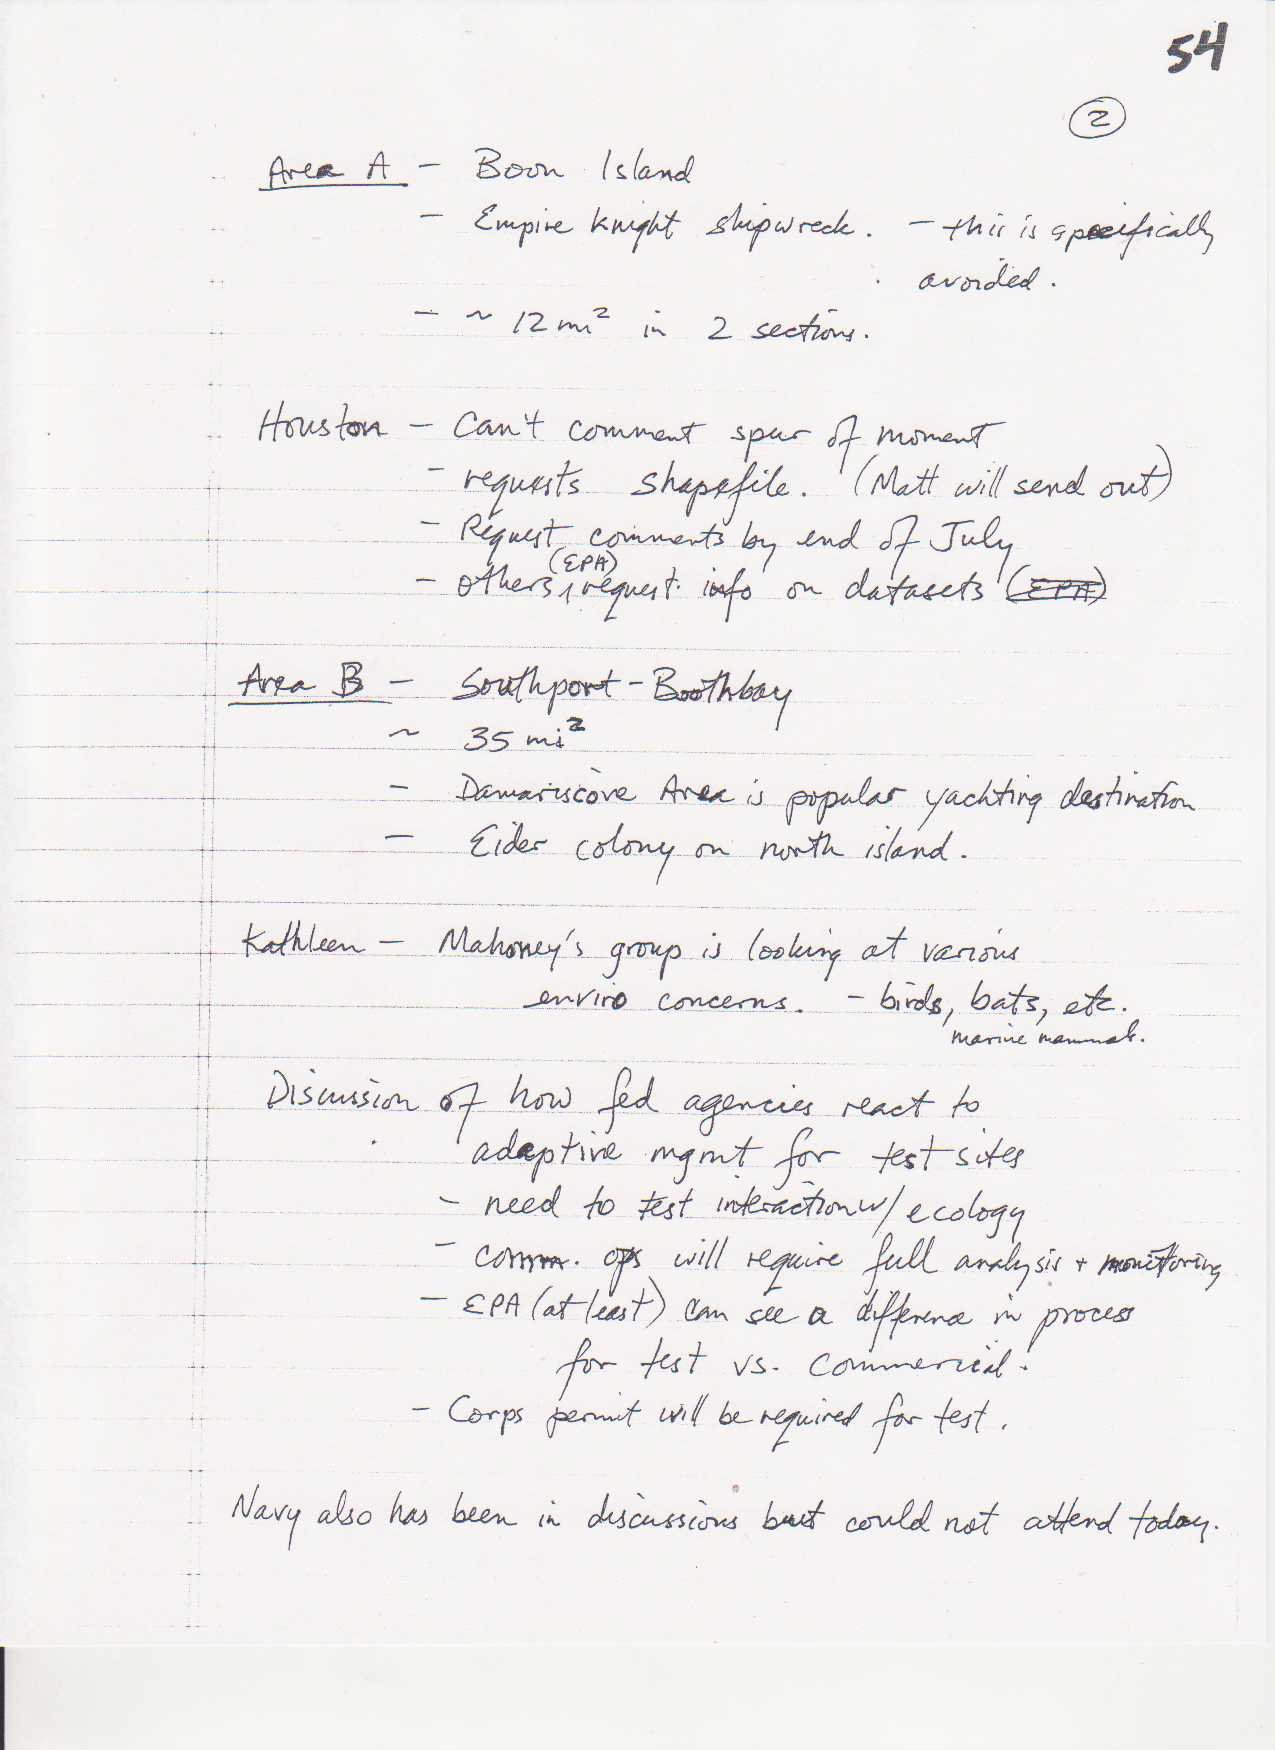 54
2
Area A - Boon Island
- Empire Knight shipwreck. - this is specifically
avoided.
- ~ 12 mi² in 2 sections.
Houston - Can't comment spur of moment
- requests shapefile. (Matt will send out)
- Request comments by end of July
(EPA)
- others, request info on datasets (EPA)
Area B - Southport - Boothbay
~ 35 mi²
- Damariscove Area is popular yachting destination
- Eider colony on north island.
Kathleen - Mahoney's group is looking at various
enviro concerns. - birds, bats, etc.
marine mammals.
Discussion of how fed agencies react to
adaptive mgmt for test sites
- need to test interaction w/ ecology
- comm. ops will require full analysis + monitoring
- EPA (at least) can see a difference in process
for test vs. commercial.
- Corps permit will be required for test.
Navy also has been in discussions but could not attend today.